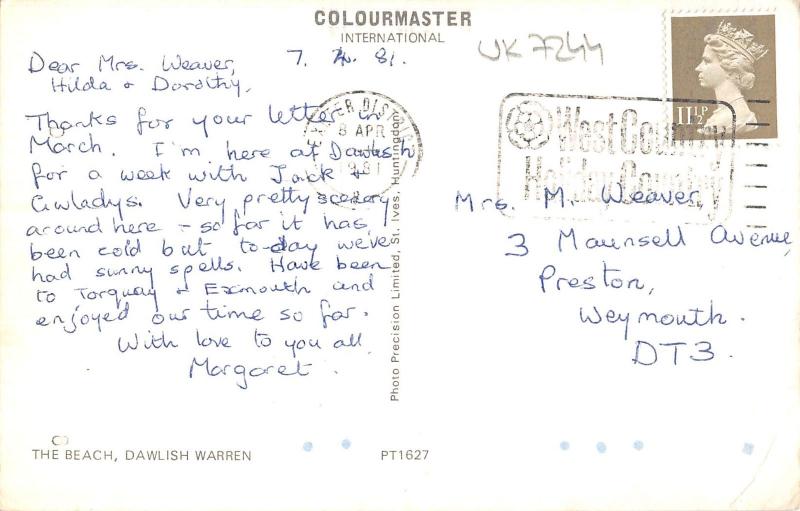 COLOURMASTER
INTERNATIONAL
UK7244
7. 4. 81.
Dear Mrs. Weaver,
Hilda & Dorothy,
Thanks for your letter in
March. I'm here at Dawlish
for a week with Jack &
Gwladys. Very pretty scenery
around here - so far it has
been cold but to-day we've
had sunny spells. Have been
to Torquay & Exmouth and
enjoyed our time so far.
With love to you all,
Margaret.
THE BEACH, DAWLISH WARREN
PT1627
Photo Precision Limited, St. Ives, Huntingdon
EXETER DISTRICT
8 APR
1981
West Country
Holiday Country
11½P
Mrs. M. Weaver,
3 Maunsell Avenue,
Preston,
Weymouth.
DT3.